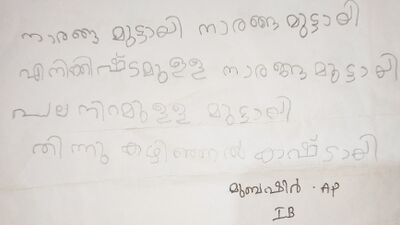 നാരങ്ങ മുട്ടായി നാരങ്ങ മുട്ടായി
എനിക്കിഷ്ടമുള്ള നാരങ്ങ മുട്ടായി
പല നിറമുള്ള മുട്ടായി
തിന്നു കഴിഞ്ഞാൽ കാഷ്ടായി
മുബഷിർ . AP
IB